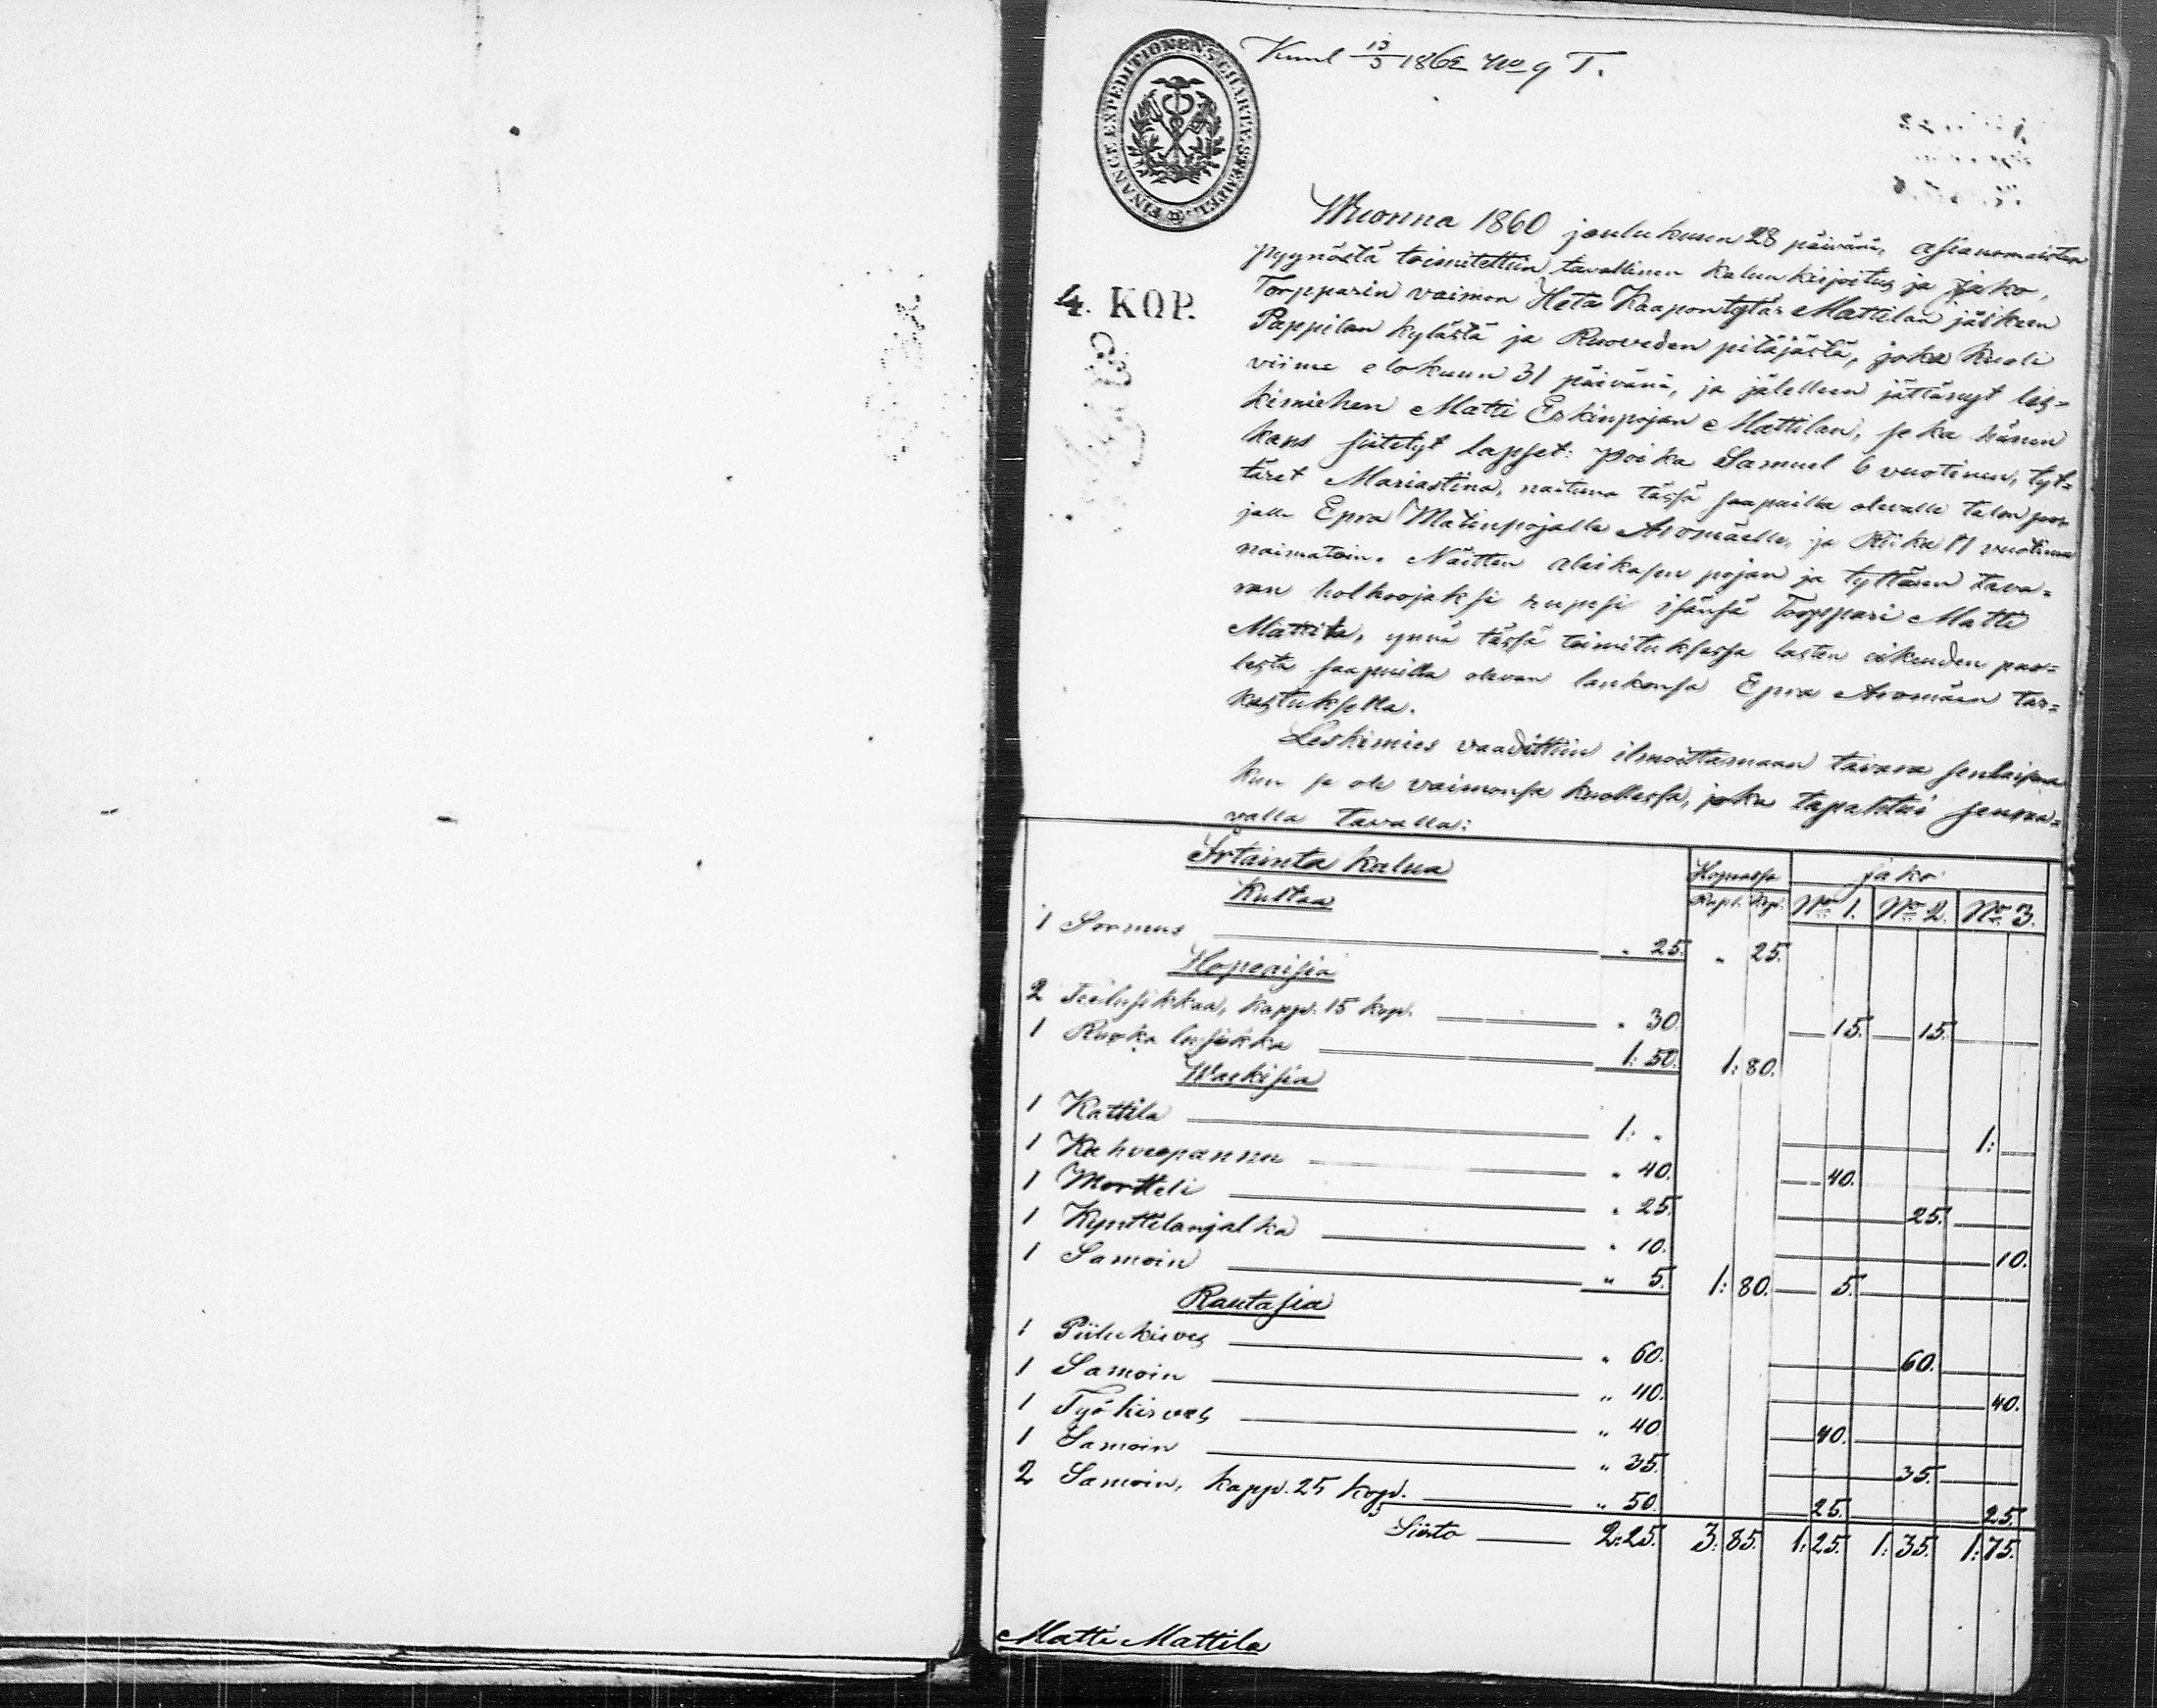 FINANCE EXPEDITIONENS CHARTÆ STEMPEL
13/3 1862 No 9 T.
4. KOP.
Wuonna 1860 joulukuun 28 päivänä, asianomaisten
pyynöstä toimitettiin tavallinen kalunkirjoitus ja jako,
Torpparin vaimon Heta Kaapontytär Mattilan jälkeen
Pappilan kylästä ja Ruoveden pitäjästä, joka kuoli
viime elokuun 31 päivänä, ja jälelleen jättänyt les=
kimiehen Matti Erkinpojan Mattilan, seka hänen
kans siitetyt lapset: poika Samuel 6 vuotinen, tyt=
täret Mariastina, naituna tässä saapuilla olevalle talon po
jalle Epra Matinpojalle Aromäelle, ja Riika 11 vuotinen
naimatoin. Näitten alaikasen pojan ja tyttären tava=
ran holhoojaksi rupesi isänsä Torppari Matti
Mattila, ynnä tässä toimituksessa lasten oikeuden puo=
lesta saapuilla olevan lankonsa Epra Aromäen tar=
kastuksella.
Leskimies vaadittiin ilmoittamaan tavara senlaisena
kun se oli vaimonsa kuollessa, joka tapahtui seuraa=
valla tavalla:
Irtainta kalua Hopiassa jako
Kultaa Rupl. Kop. No 1. No 2. No 3.
1 Sormus " 25. " 25.
Hopeaisia
2 Teelusikkaa, kapp. 15 kop. " 30. 15. 15.
1 Ruoka lusikka 1: 50. 1: 80.
Waskisia
1 Kattila 1: " 1:
1 Kahveepannu " 40. 40.
1 Mortteli " 25. 25.
1 Kynttilänjalka " 10. 10.
1 Samoin " 5. 1: 80. 5.
Rautasia
1 Piilukirves " 60. 60.
1 Samoin " 40. 40.
1 Työkirves " 40 40.
1 Samoin " 35. 35.
2 Samoin, kapp. 25 kop. " 50. 25. 25.
Siirto 2: 25. 3: 85. 1: 25. 1: 35. 1: 75.
Matti Mattila